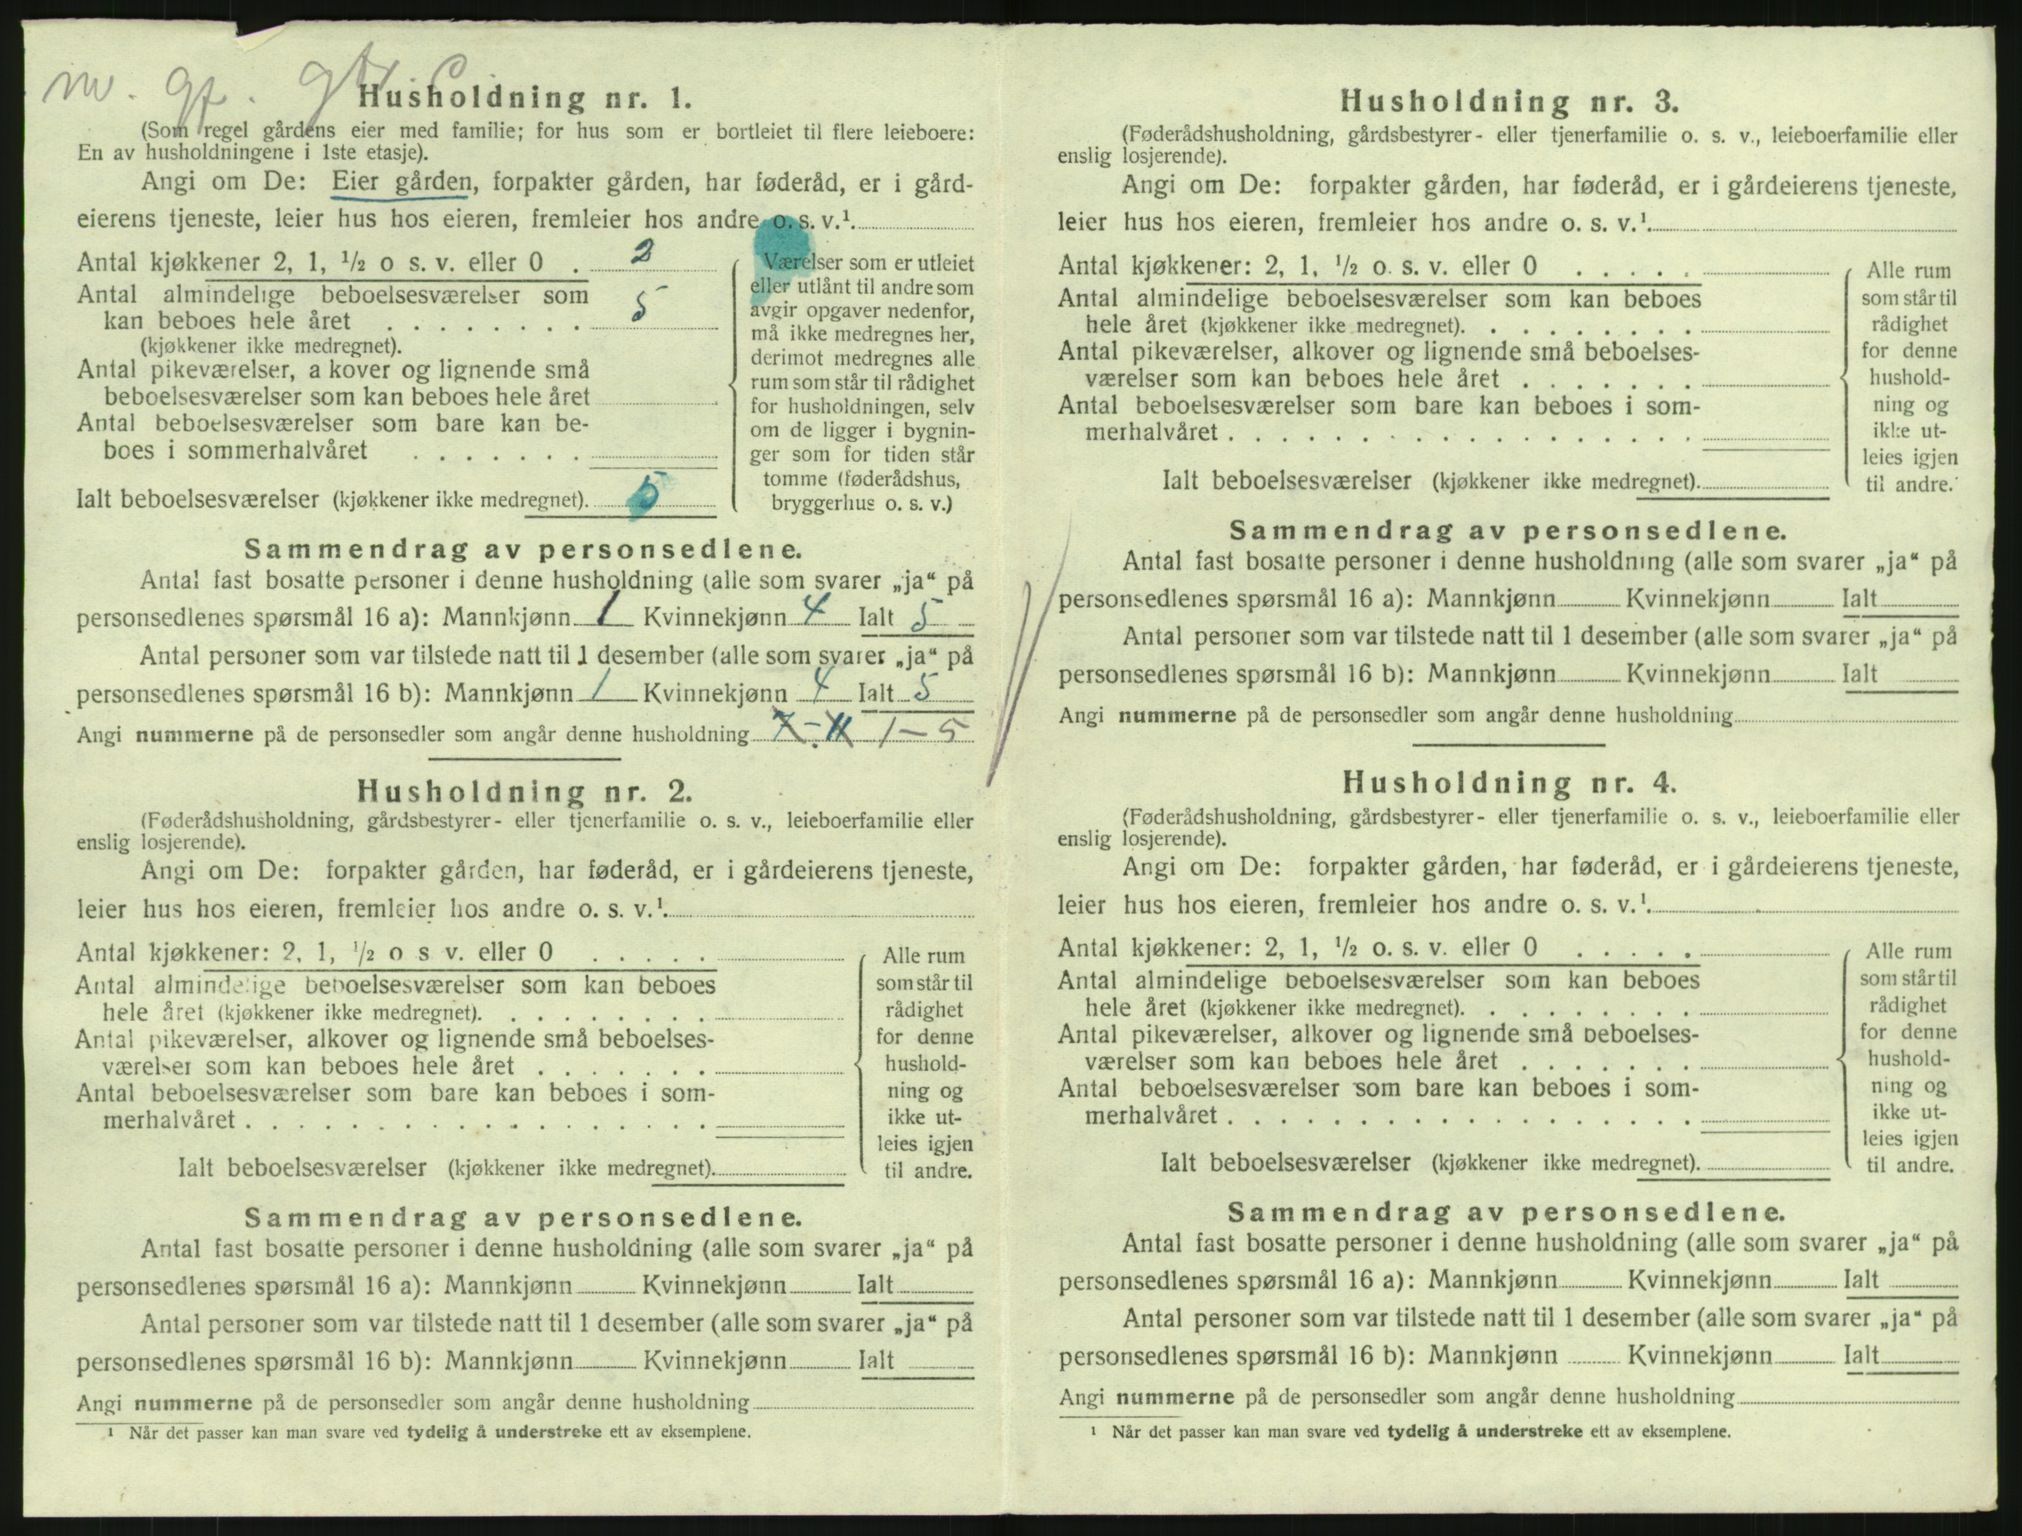 Husholdning nr. 1.
(Som regel gårdens eier med familie; for hus som er bortleiet til flere leieboere:
En av husholdningene i 1ste etasje).
Angi om De: Eier gården, forpakter gården, har føderåd, er i gård-
eierens tjeneste, leier hus hos eieren, fremleier hos andre o. s. v.¹
Antal kjøkkener 2, 1, ½ o s. v. eller 0 . 2
Antal almindelige beboelsesværelser som
kan beboes hele året . . . . . . . . 5
(kjøkkener ikke medregnet).
Antal pikeværelser, a kover og lignende små
beboelsesværelser som kan beboes hele året
Antal beboelsesværelser som bare kan be-
boes i sommerhalvåret . . . . . . .
Ialt beboelsesværelser (kjøkkener ikke medregnet). 5
Værelser som er utleiet
eller utlånt til andre som
avgir opgaver nedenfor,
må ikke medregnes her,
derimot medregnes alle
rum som står til rådighet
for husholdningen, selv
om de ligger i bygnin-
ger som for tiden står
tomme (føderådshus,
bryggerhus o. s. v.)
Sammendrag av personsedlene.
Antal fast bosatte personer i denne husholdning (alle som svarer „ja“ på
personsedlenes spørsmål 16 a): Mannkjønn 1 Kvinnekjønn 4 Ialt 5
Antal personer som var tilstede natt til 1 desember (alle som svarer „ja“ på
personsedlenes spørsmål 16 b): Mannkjønn 1 Kvinnekjønn 4 Ialt 5
Angi nummerne på de personsedler som angår denne husholdning 7-11 1-5
Husholdning nr. 2.
(Føderådshusholdning, gårdsbestyrer- eller tjenerfamilie o. s. v., leieboerfamilie eller
enslig losjerende).
Angi om De: forpakter gården, har føderåd, er i gårdeierens tjeneste,
leier hus hos eieren, fremleier hos andre o. s. v.¹.
Antal kjøkkener: 2, 1, ½ o s v. eller 0 . . . . .
Antal almindelige beboelsesværelser som kan beboes
hele året (kjøkkener ikke medregnet). . . . . . . . .
Antal pikeværelser, alkover og lignende små beboelses-
værelser som kan beboes hele året . . . . . . .
Antal beboelsesværelser som bare kan beboes i som-
merhalvåret . . . . . . . . . . . . . . . . . .
Ialt beboelsesværelser (kjøkkener ikke medregnet).
Alle rum
som står til
rådighet
for denne
hushold-
ning og
ikke ut-
leies igjen
til andre.
Sammendrag av personsedlene.
Antal fast bosatte personer i denne husholdning (alle som svarer „ja“ på
personsedlenes spørsmål 16 a): Mannkjønn Kvinnekjønn Ialt
Antal personer som var tilstede natt til 1 desember (alle som svarer „ja“ på
personsedlenes spørsmål 16 b): Mannkjønn Kvinnekjønn Ialt
Angi nummerne på de personsedler som angår denne husholdning
¹ Når det passer kan man svare ved tydelig å understreke ett av eksemplene.
Husholdning nr. 3.
(Føderådshusholdning, gårdsbestyrer- eller tjenerfamilie o. s. v., leieboerfamilie eller
enslig losjerende).
Angi om De: forpakter gården, har føderåd, er i gårdeierens tjeneste,
leier hus hos eieren, fremleier hos andre o. s. v.¹.
Antal kjøkkener: 2, 1, ½ o. s. v. eller 0 . . . . .
Antal almindelige beboelsesværelser som kan beboes
hele året (kjøkkener ikke medregnet). . . . . . . . .
Antal pikeværelser, alkover og lignende små beboelses-
værelser som kan beboes hele året . . . . . . .
Antal beboelsesværelser som bare kan beboes i som-
merhalvåret . . . . . . . . . . . . . . . . . .
Ialt beboelsesværelser (kjøkkener ikke medregnet).
Alle rum
som står til
rådighet
for denne
hushold-
ning og
ikke ut-
leies igjen
til andre.
Sammendrag av personsedlene.
Antal fast bosatte personer i denne husholdning (alle som svarer „ja“ på
personsedlenes spørsmål 16 a): Mannkjønn Kvinnekjønn Ialt
Antal personer som var tilstede natt til 1 desember (alle som svarer „ja“ på
personsedlenes spørsmål 16 b): Mannkjønn Kvinnekjønn Ialt
Angi nummerne på de personsedler som angår denne husholdning
Husholdning nr. 4.
(Føderådshusholdning, gårdsbestyrer- eller tjenerfamilie o. s. v., leieboerfamilie eller
enslig losjerende).
Angi om De: forpakter gården, har føderåd, er i gårdeierens tjeneste,
leier hus hos eieren, fremleier hos andre o. s. v.¹.
Antal kjøkkener: 2, 1, ½ o. s. v. eller 0 . . . . .
Antal almindelige beboelsesværelser som kan beboes
hele året (kjøkkener ikke medregnet). . . . . . . . .
Antal pikeværelser, alkover og lignende små beboelses-
værelser som kan beboes hele året . . . . . . .
Antal beboelsesværelser som bare kan beboes i som-
merhalvåret . . . . . . . . . . . . . . . . . .
Ialt beboelsesværelser (kjøkkener ikke medregnet).
Alle rum
som står til
rådighet
for denne
hushold-
ning og
ikke ut-
leies igjen
til andre.
Sammendrag av personsedlene.
Antal fast bosatte personer i denne husholdning (alle som svarer „ja“ på
personsedlenes spørsmål 16 a): Mannkjønn Kvinnekjønn Ialt
Antal personer som var tilstede natt til 1 desember (alle som svarer „ja“ på
personsedlenes spørsmål 16 b): Mannkjønn Kvinnekjønn Ialt
Angi nummerne på de personsedler som angår denne husholdning
¹ Når det passer kan man svare ved tydelig å understreke ett av eksemplene.